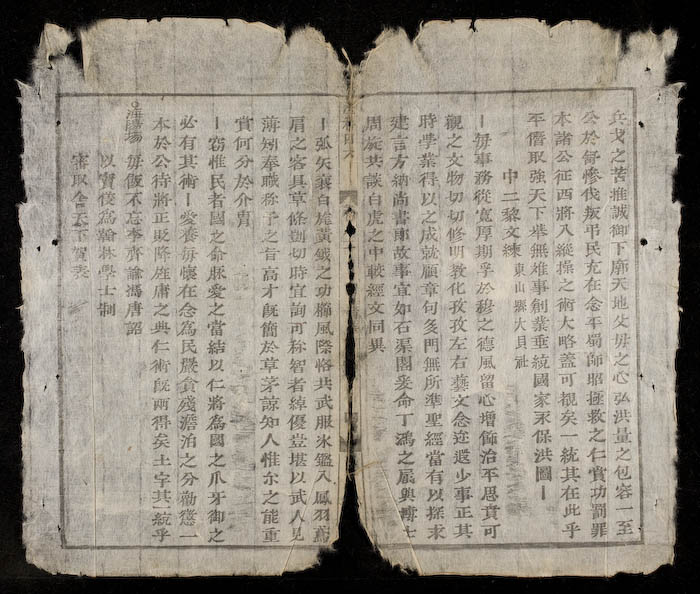 兵戈之苦推誠御下廓天地父母之心弘洪量之包容一至
公於舒慘伐叛弔民充在念平蜀師昭拯救之仁賞功罰罪
本諸公征西將入縱操之術大略蓋可覩矣一統其在此乎
平僭取強天下華無难事創業垂統國家永保洪圖丨
中二黎文練 東山縣大貝社
丨毋事務從寬厚期孚於穆之德風留心增飾治平思賁可
觀之文物切切修明敎化孜孜左右藝文念迩還少事正其
時學業得以之成就顧章句多門無所準聖經當有以探求
建言方納尚書郎故事宜如石渠閣爰命丁鴻之屬與博士
周旋共談白虎之中較經文同異
丨弧矢襄白旄黃鉞之功櫛風際恪共武服氷鑑入鳳羽鴻
肩之客具草條剴切時宜詢可称智者綽優豈堪以武人見
薄矧奉職称予之旨高才旣簡於草茅諒知人惟尔之能重
賞何分於介冑
丨竊惟民者國之命脉愛之當結以仁將爲國之爪牙御之
必有其術丨愛養毋懷在念爲民嚴貪殘澹泊之分勸懲一
本於公待將正貶降庭庸之典仁術旣兩得矣土宇其統乎
海陽場 毋飯不忘李齊諭馮唐詔
以實儀爲翰林學士制
宋取全天下賀表